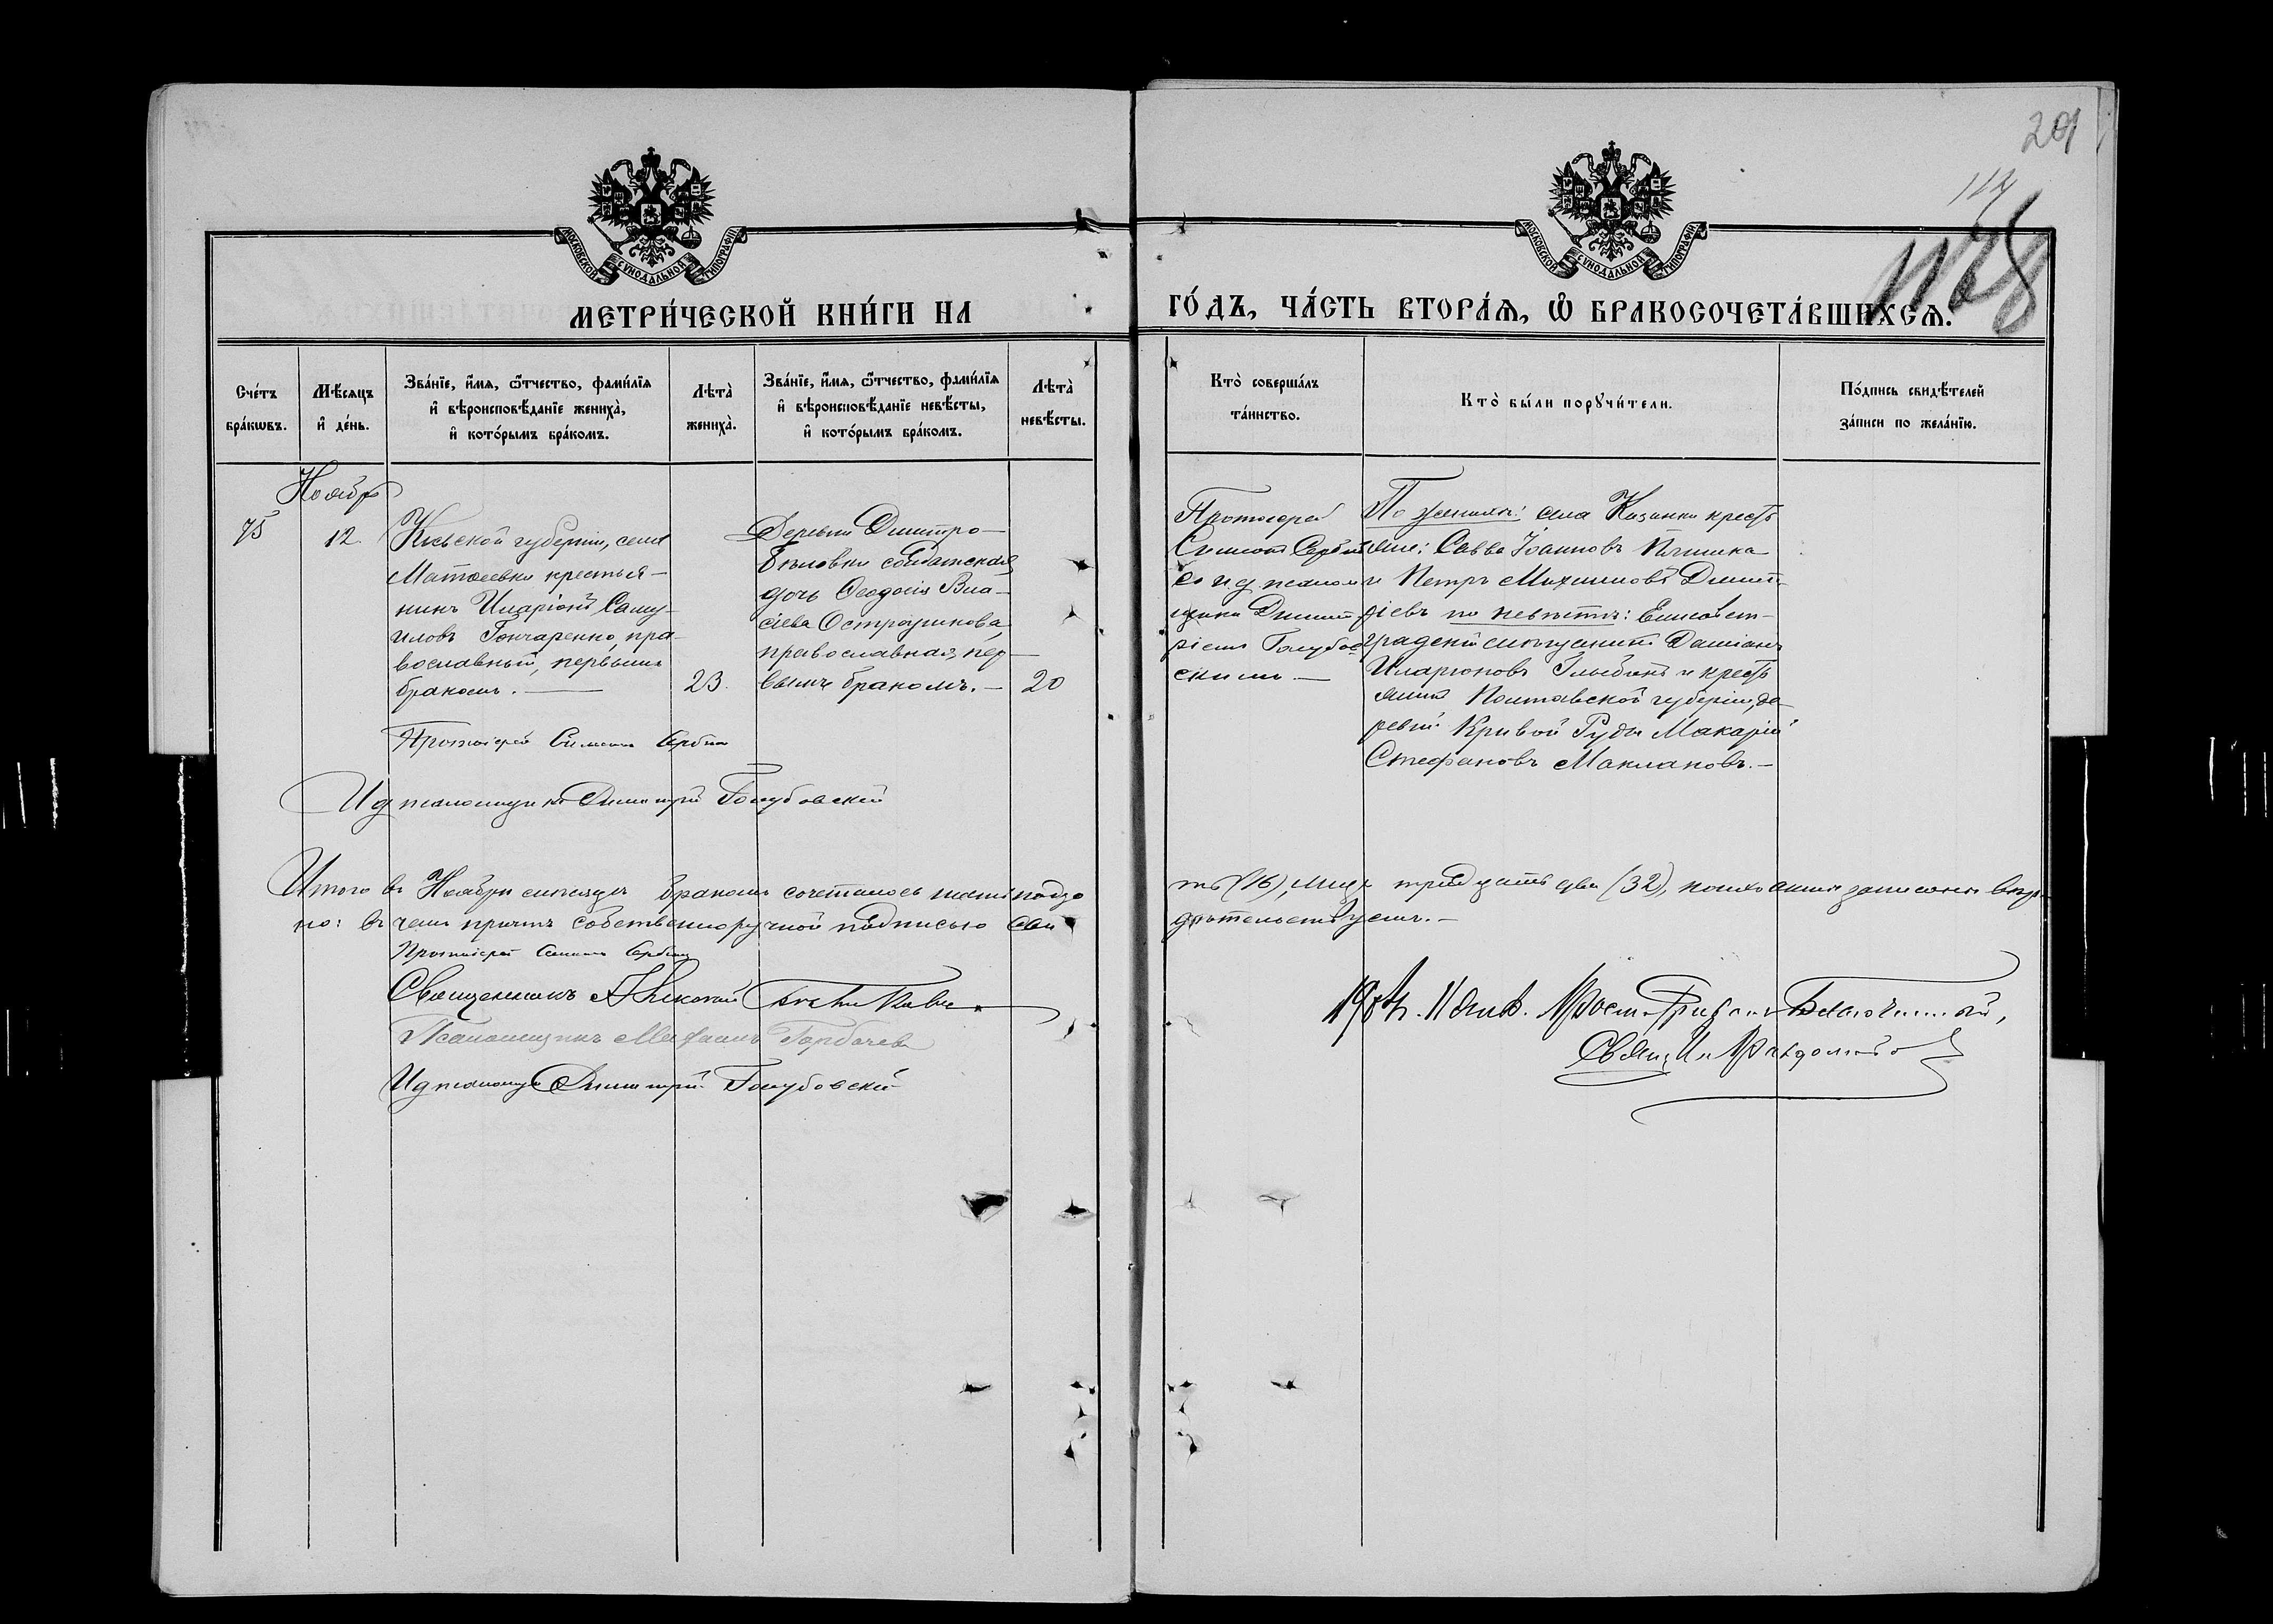 201
117
1168
МОСКОВСКОЙ СѴНОДАЛЬНОЙ ТИПОГРАФІИ
МОСКОВСКОЙ СѴНОДАЛЬНОЙ ТИПОГРАФІИ
МЕТРИ́ЧЕСКОЙ КНИ́ГИ НА
ГО́ДЪ, ЧА́СТЬ ВТОРА́Ѧ, Ѽ БРАКОСОЧЕТА́ВШИХСѦ.
Сче́тъ
бра́кѡвъ.
Мѣ́сяцъ
и҆ де́нь.
Зва́нїе, и҆́мѧ, ѻ҆́тчество, фами́лїѧ
и҆ вѣроисповѣ́данїе жениха̀,
и҆ кото́рымъ бра́комъ.
Лѣта̀
жениха̀.
Зва́нїе, и҆́мѧ, ѻ҆́тчество, фами́лїѧ
и҆ вѣроисповѣ́данїе невѣ́сты,
и҆ кото́рымъ бра́комъ.
Лѣта̀
невѣ́сты.
Кто̀ соверша́лъ
та́инство.
Кто̀ бы́ли порꙋчи́тели.
По́дпись свидѣ́телей
за́писи по жела́нїю.
Ноябрь
75
12.
Кіевской губерніи, села
Матвеевки крестья-
нинъ Иларіонъ Саму-
иловъ Гончаренко, пра-
вославный, первымъ
бракомъ. —
23.
Деревни Дмитро-
Бѣловки солдатская
дочь Ѳеодосія Вла-
сіева Остроухова,
православная, пер-
вымъ бракомъ. —
20
Протоіерей
Симеонъ Сербинъ
съ и д псалом-
щика Димит-
ріемъ Голубов-
скимъ —
По женихѣ: села Казанки кресть-
яне: Савва Іоанновъ
и Петръ Михаиловъ Димит-
ріевъ по невѣстѣ: Елисавет-
градскій мѣщанинъ Даміанъ
Иларіоновъ и кресть-
янинъ Полтавской губерніи, де-
ревни Кривой Руды Макарій
Стефановъ Маклаковъ. —
Протоіерей Симеонъ Сербинъ
И д псаломщика Димитрій Голубовскій
Итого въ Ноябрѣ мѣсяцѣ бракомъ сочеталось шестнадца
ть (16), лицъ тридцать два (32), поихъ записаны вѣр-
но: въ чемъ причтъ собственноручной подписью сви
дѣтельствуемъ. —
Протоіерей Симеонъ Сербинъ
Священникъ Николай
Псаломщикъ Михаилъ Горбачевъ
И д псаломщ Димитрій Голубовскій
Благочинный,
Свящ.